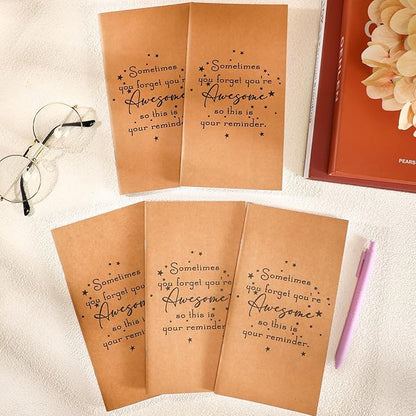 Sometimes
you forget you're
Awesome
so this is
your reminder.
Sometimes
you forget you're
Awesome
so this is
your reminder.
PEARS
Sometimes
you forget you're
Awesome
so this is
your reminder.
Sometimes
you forget you're
Awesome
so this is
your reminder.
Sometimes
you forget you're
Awesome
so this is
your reminder.